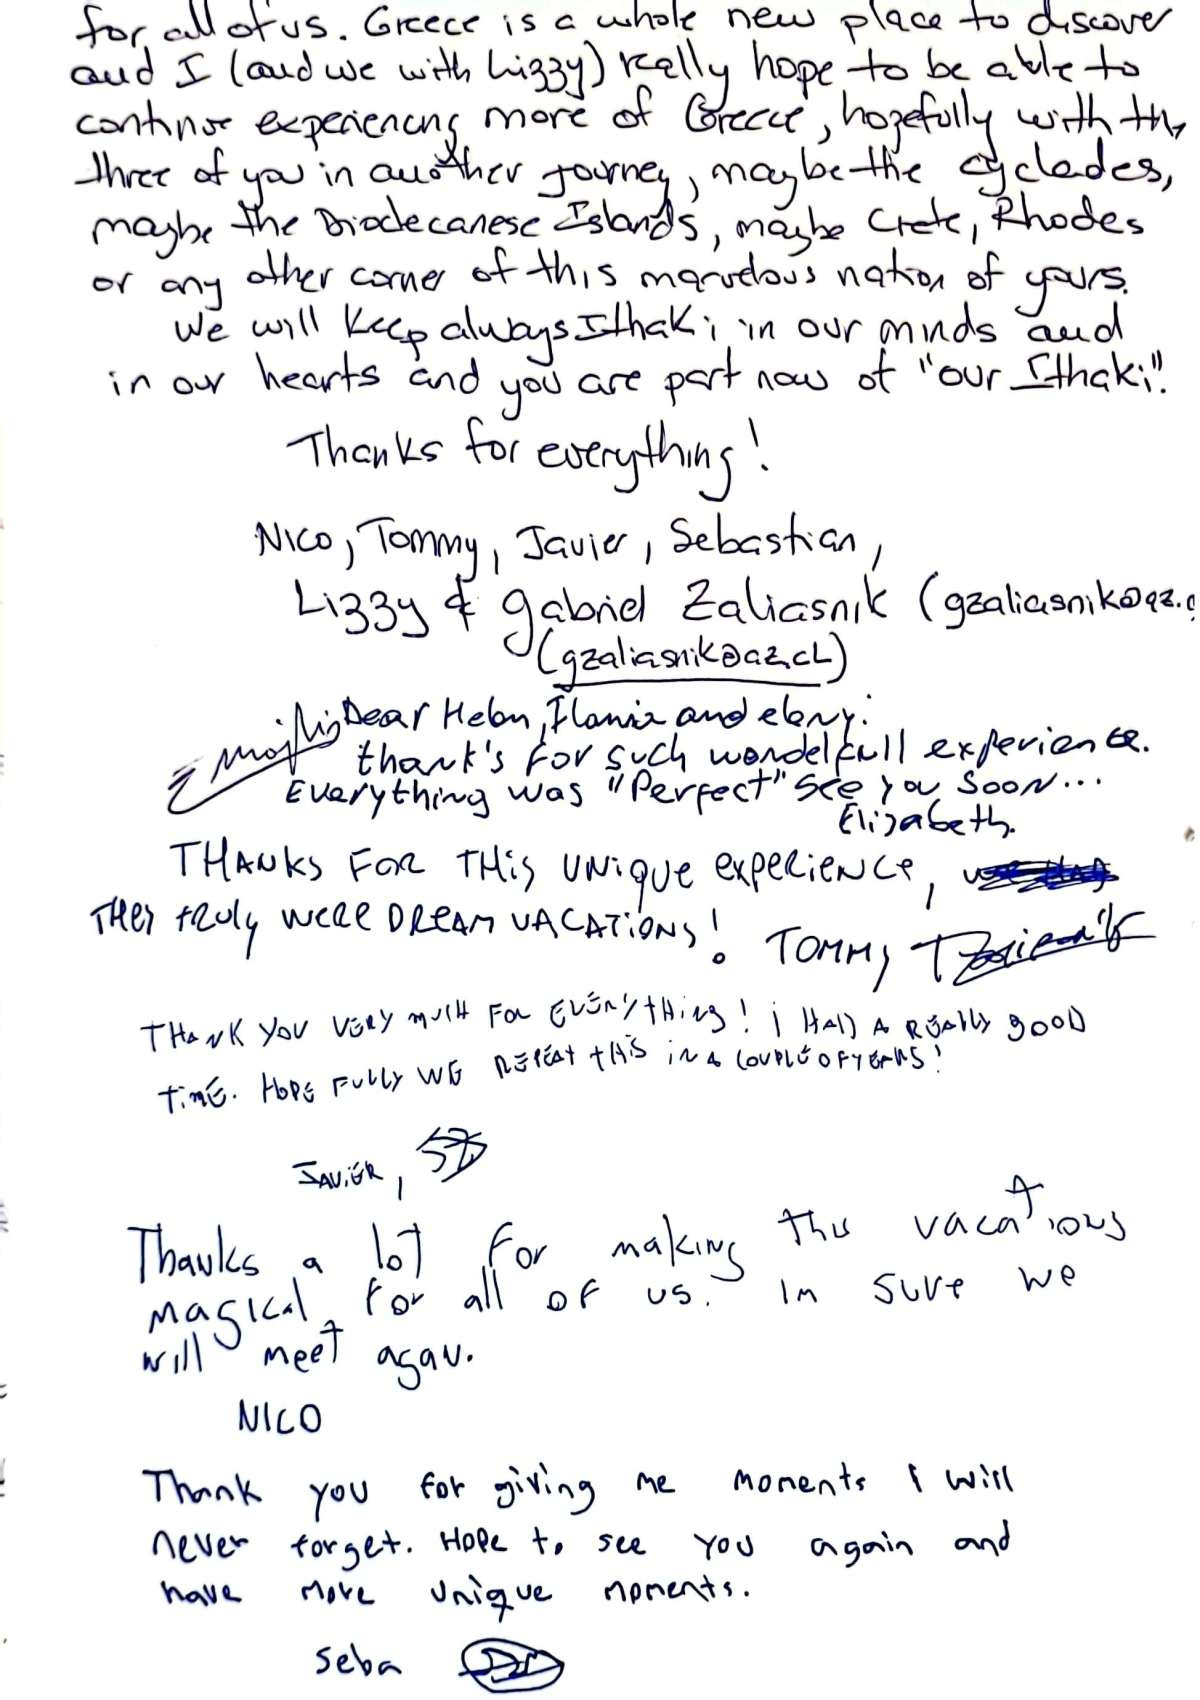 for all of us. Greece is a whole new place to discover
and I (and we with Lizzy) really hope to be able to
continue experiencing more of Greece, hopefully with the
three of you in another journey, maybe the cyclades,
maybe the Diodecanese Islands, maybe Crete, Rhodes
or any other corner of this marvelous nation of yours.
We will keep always Ithaki in our minds and
in our hearts and you are part now of "our Ithaki".
Thanks for everything!
Nico, Tommy, Javier, Sebastian,
Lizzy & gabriel Zaliasnik (gzaliasnik@az.c
(gzaliasnik@az.cL)
Dear Helen, and
thank's For such wondelfull experience.
Everything was "Perfect" See you Soon...
Elizabeth.
THANKS FOR THIS UNiQUE EXPERIENCE,
THEY tRULY WERE DREAM VACATiONS! TOMMY
THANK YOU VERY MUCH FOR EVERYTHING! i HAD A REALLY GOOD
TiME. HOPE FULLY WE REPEAT tHiS iN A COUPLE OF YEARS!
JAViER,
Thanks a lot for making this vacations
magical for all of us. Im sure we
will meet again.
NICO
Thank you for giving me moments I will
never forget. Hope to see you again and
have more unique moments.
Seba